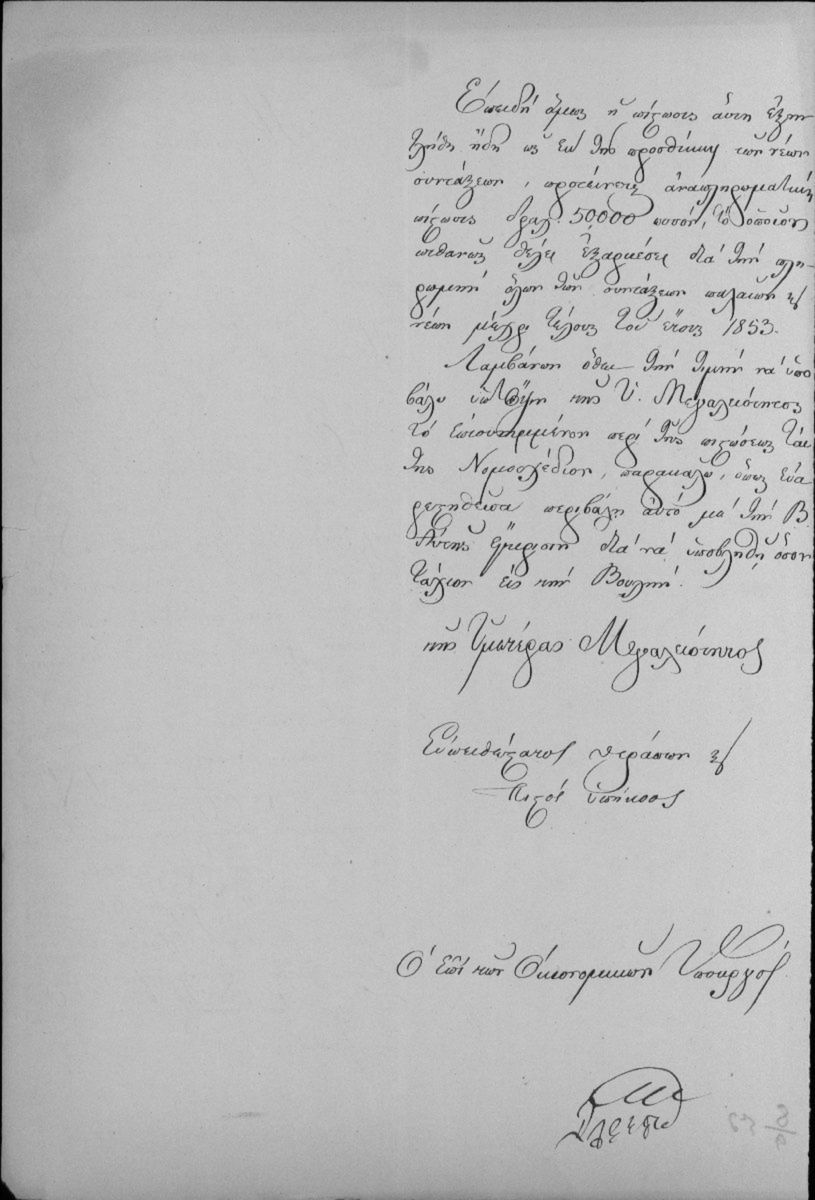 Ἐπειδὴ ὅμως ἡ πίστωσις αὕτη ἐξην
τλήθη ἤδη ὡς ἐκ τῆς προσθήκης τῶν νέων
συντάξεων, προτείνεται ἀναπληρωματικὴ
πίστωσις δραχ. 50,000 ποσόν, τὸ ὁποῖον
πιθανῶς θέλει ἐξαρκέσει διὰ τὴν πλη-
ρωμὴν ὅλων τῶν συντάξεων παλαιῶν ϗ
νέων μέχρι τέλους τοῦ ἔτους 1853.
Λαμβάνων ὅθεν τὴν τιμὴν νὰ ὑπο
βάλω ὑπ' ὄψιν τῆς Ὑ. Μεγαλειότητος
τὸ ἐπισυνημμένον περὶ τῆς πιστώσεως ταύ
της Νομοσχέδιον, παρακαλῶ, ὅπως εὐα
ρεστηθεῖσα περιβάλῃ αὐτὸ μὲ τὴν Β.
Αὐτῆς ἔγκρισιν διὰ νὰ ὑποβληθῇ ὅσον
τάχιον εἰς τὴν Βουλήν.
τῆς Ὑμετέρας Μεγαλειότητος
Εὐπειθέστατος θεράπων ϗ
πιστὸς ὑπήκοος
Ὁ ἐπὶ τῶν Οἰκονομικῶν Ὑπουργὸς